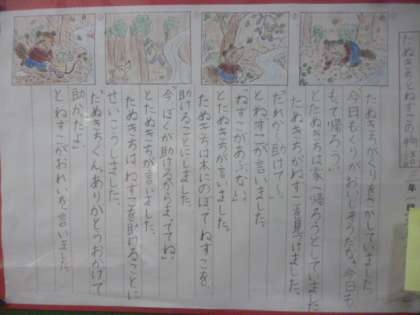 たぬきちとねずこの物語
年
たぬきちがくりをさがしていました。
「今日もくりがおいしそうだな。今日も
もって帰ろう。」
たぬきちは家へ帰ろうとしていました。
たぬきちがねずこを見つけました。
「だれか、助けて〜」
とねずこが言いました。
「ねずこがあぶない。」
とたぬきちが言いました。
たぬきちは木にのぼてねずこを、
助けることにしました。
「今、ぼくが助けるからまっててね」
とたぬきちが言いました。
とたぬきちは、ねずこを助けることに
せいこうしました。
「たぬきちくん、ありがとうおかげで
助かったよ」
とねずこがおれいを言いました。